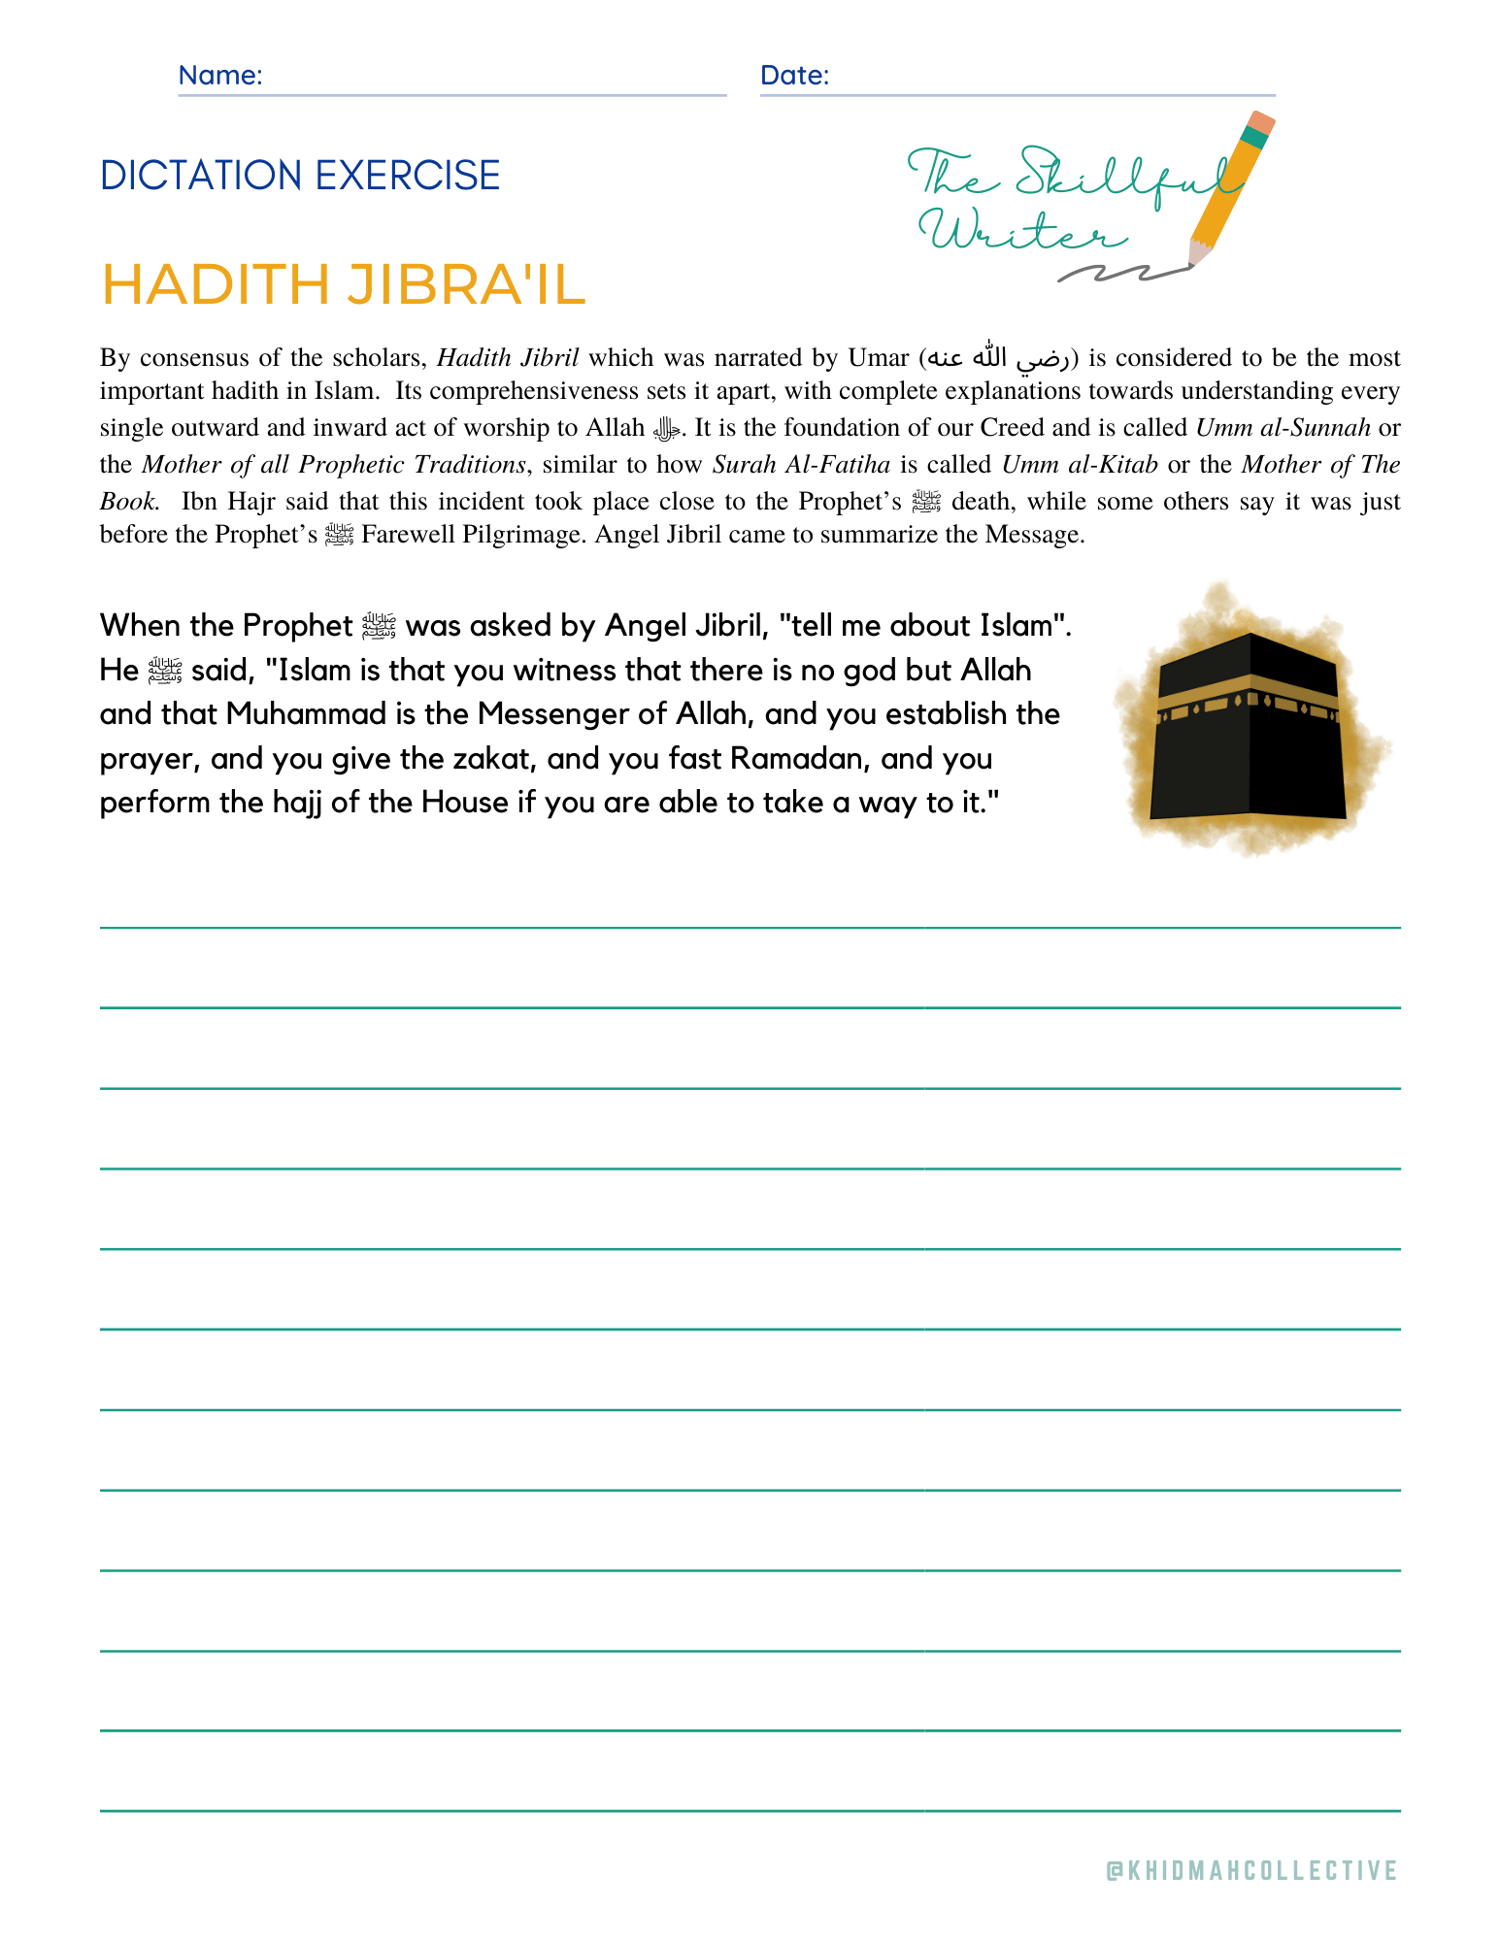 Name:
Date:
DICTATION EXERCISE
The Skillful
Writer
HADITH JIBRA'IL
By consensus of the scholars, Hadith Jibril which was narrated by Umar (رضي الله عنه) is considered to be the most
important hadith in Islam. Its comprehensiveness sets it apart, with complete explanations towards understanding every
single outward and inward act of worship to Allah ﷻ. It is the foundation of our Creed and is called Umm al-Sunnah or
the Mother of all Prophetic Traditions, similar to how Surah Al-Fatiha is called Umm al-Kitab or the Mother of The
Book. Ibn Hajr said that this incident took place close to the Prophet’s ﷺ death, while some others say it was just
before the Prophet’s ﷺ Farewell Pilgrimage. Angel Jibril came to summarize the Message.
When the Prophet ﷺ was asked by Angel Jibril, "tell me about Islam".
He ﷺ said, "Islam is that you witness that there is no god but Allah
and that Muhammad is the Messenger of Allah, and you establish the
prayer, and you give the zakat, and you fast Ramadan, and you
perform the hajj of the House if you are able to take a way to it."
@KHIDMAHCOLLECTIVE